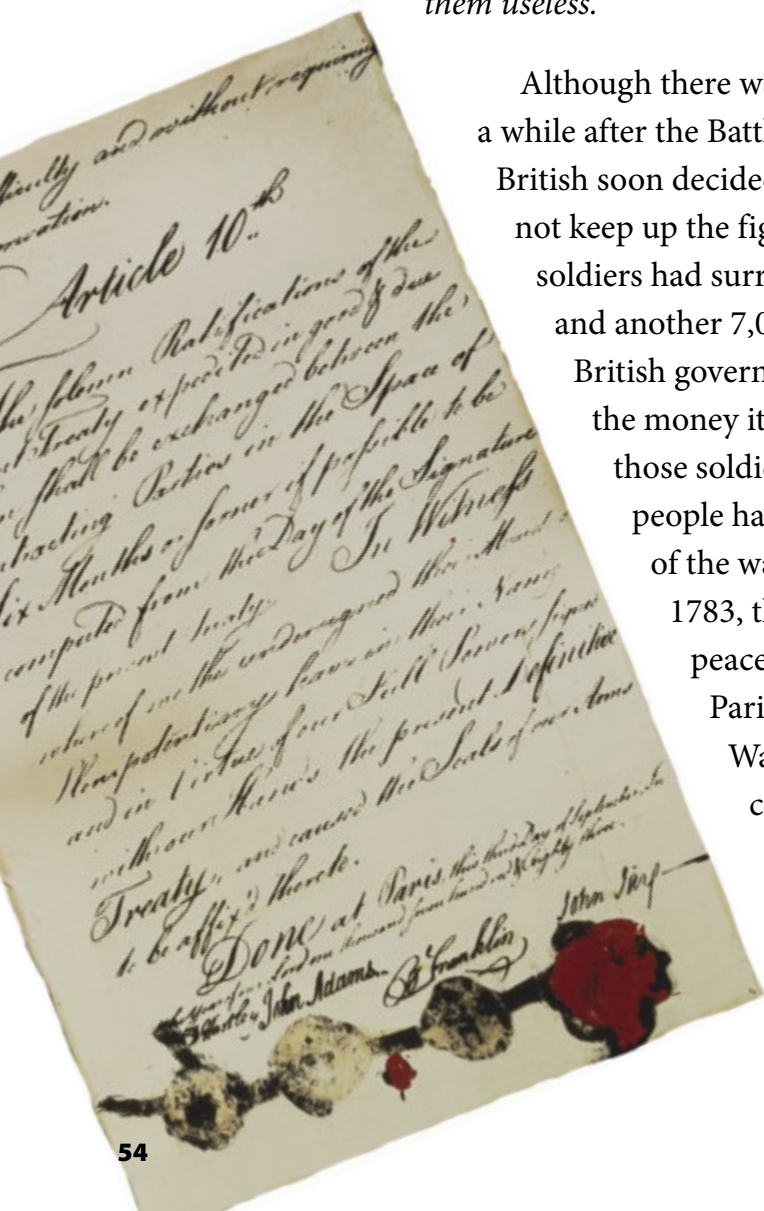 them useless.
Although there wa
a while after the Battl
British soon decided
not keep up the fig
soldiers had surr
and another 7,0
British governm
the money it
those soldie
people ha
of the wa
1783, th
peace
Pari
Wa
c
ficulty and without requiring
Article 10.th
solemn Ratifications of the
Treaty expedited in good & due
shall be exchanged between the
Parties in the Space of
Six Months or sooner if possible to be
computed from the Day of the Signature
of the present Treaty. In Witness
whereof we the undersigned their
Plenipotentiary have in their Name
and in Virtue of our Full Powers signed
with our Hands the present Definitive
Treaty, and caused the Seals of our Arms
to be affix'd thereto.
Done at Paris, this third Day of September, In
the Year of our Lord one thousand seven hundred & eighty three.
D Hartley John Adams. B Franklin John Jay
54